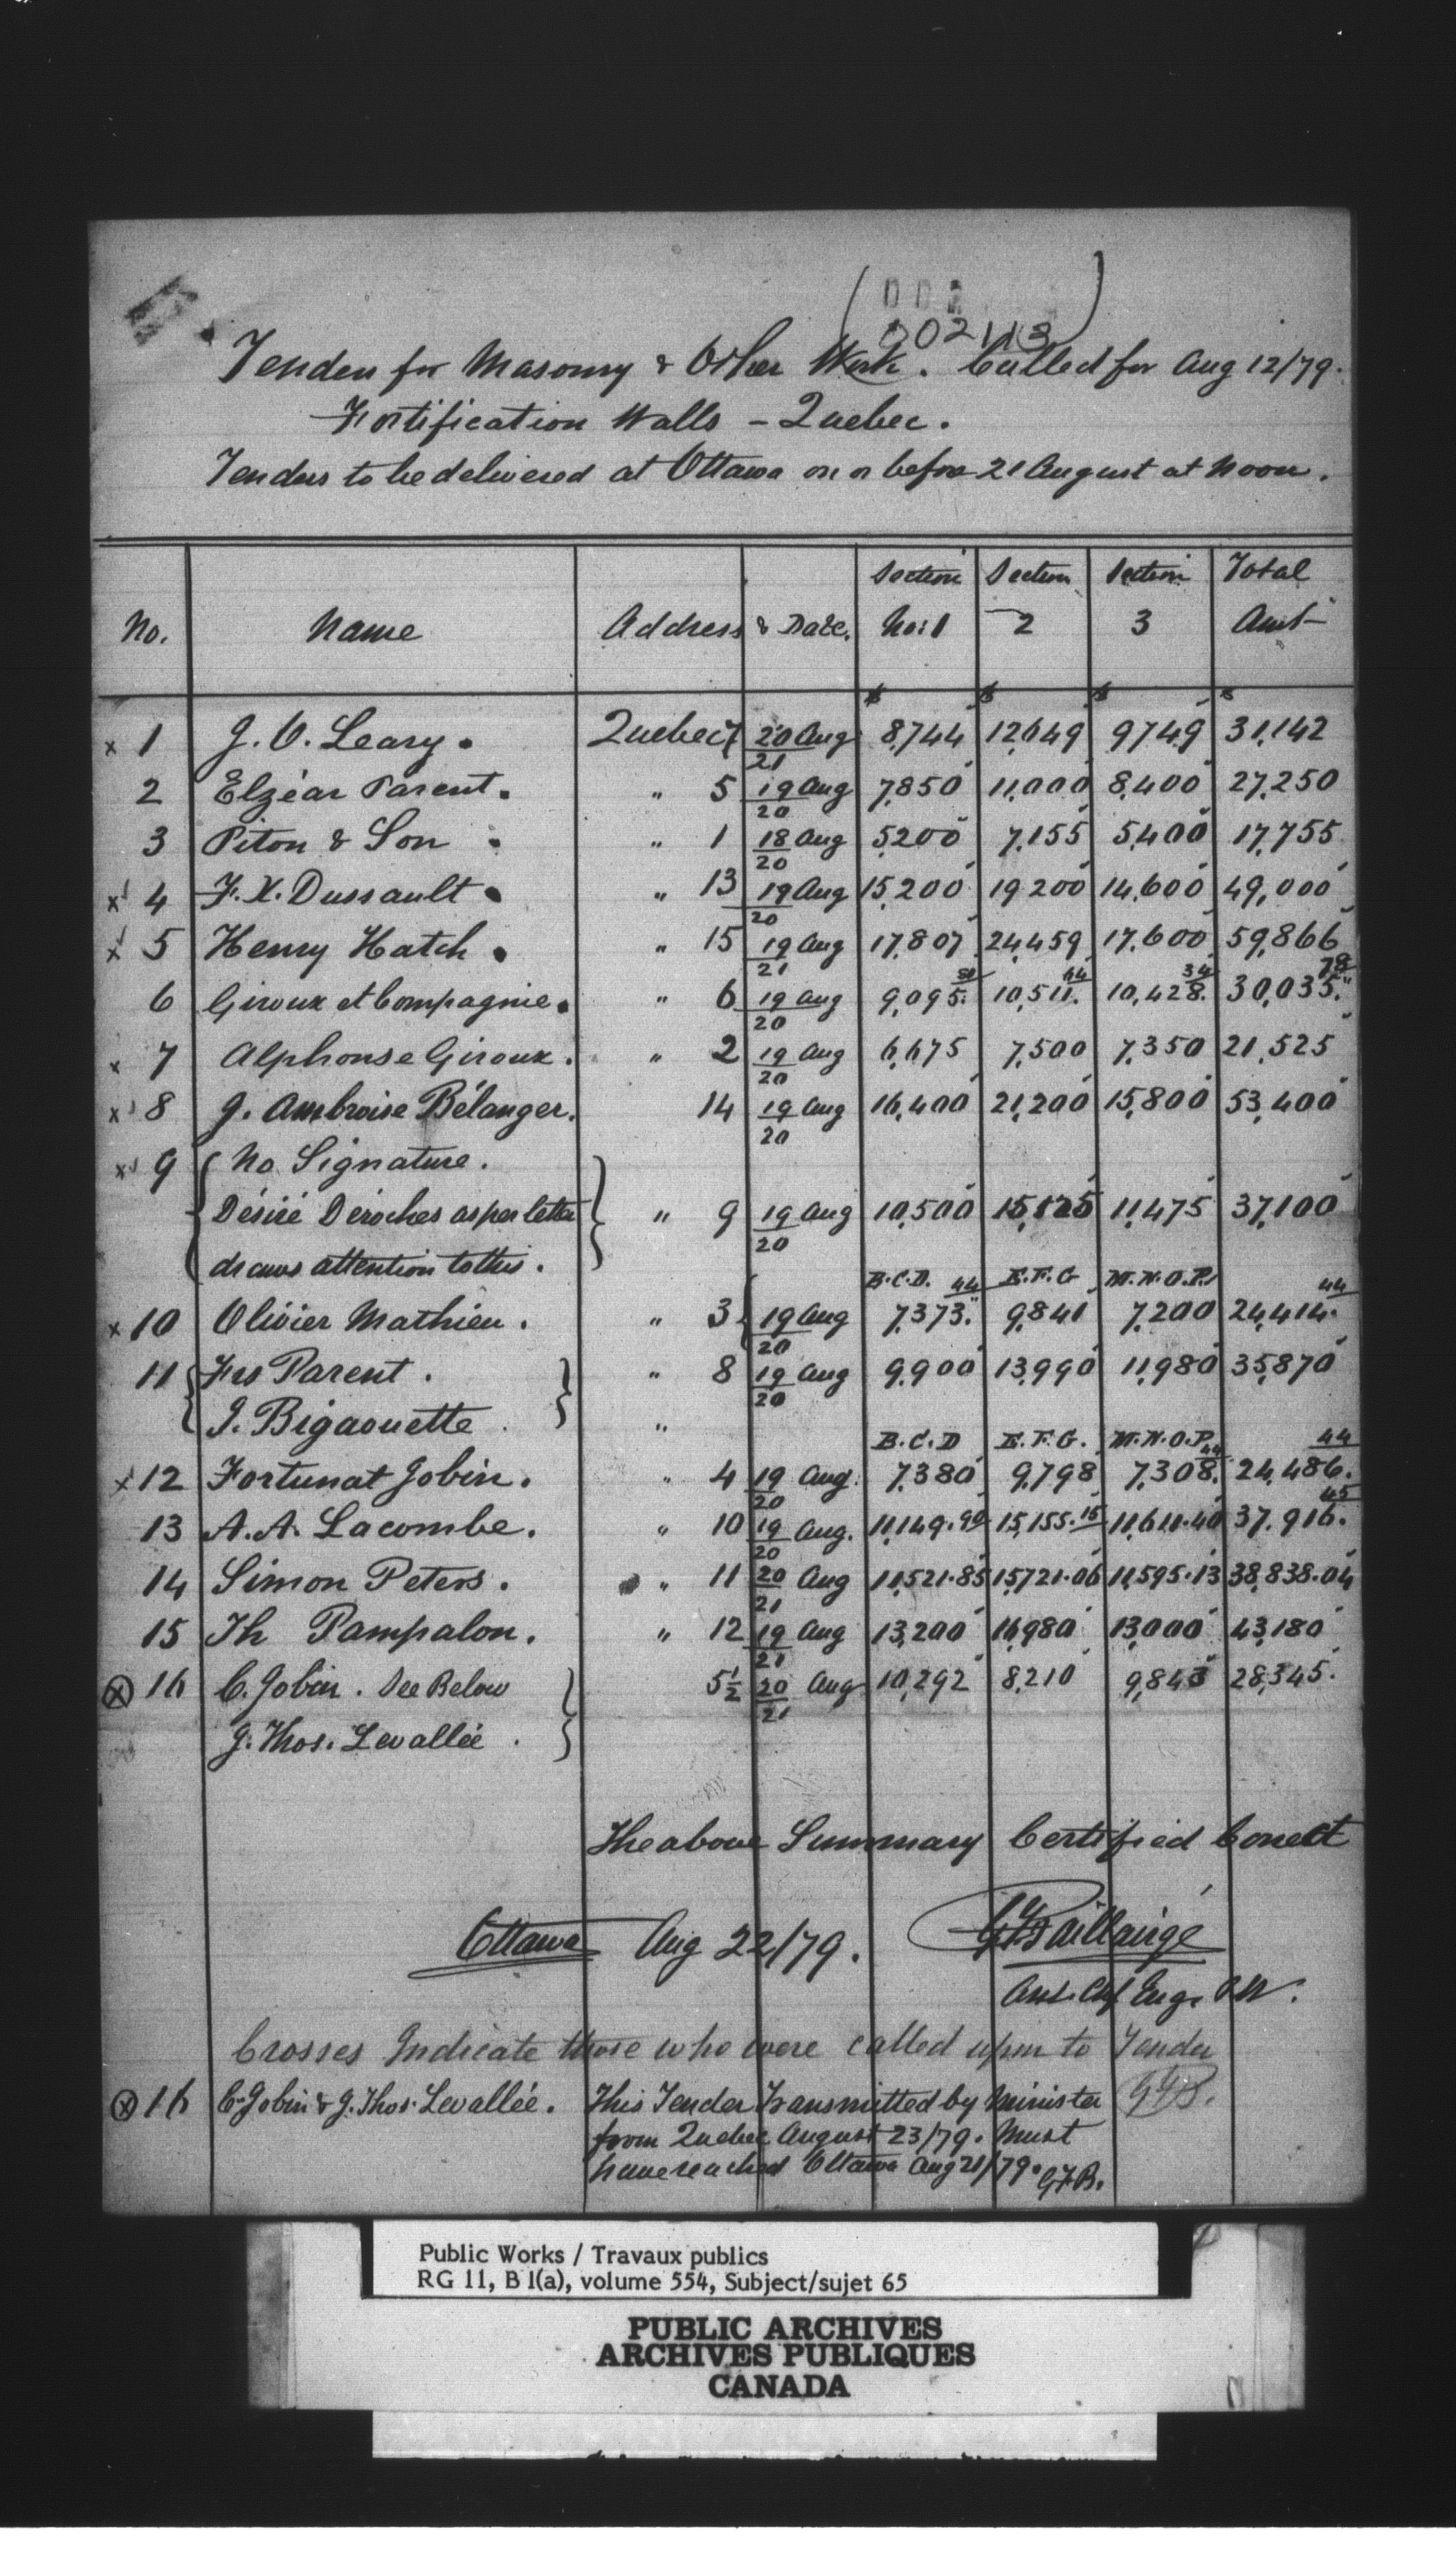 002113
Tenders for Masonry & Other Work. Called for Aug 12/79.
Fortification Walls - Quebec.
Tenders to be delivered at Ottawa on or before 21 August at Noon.
No. Name Address & Date. Section No: 1 Section 2 Section 3 Total Amt
$ $ $ $
x 1 J. O. Leary. Quebec 7 20/21 Aug 8,744 12,649 9749 31,142
2 Elzéar Parent. " 5 19/20 Aug 7,850 11,000 8,400 27,250
3 Piton & Son " 1 18/20 Aug 5,200 7,155 5,400 17,755
x 4 F. X. Dussault " 13 19/20 Aug 15,200 19,200 14,600 49,000
x 5 Henry Hatch. " 15 19/21 Aug 17,807 24,459 17,600 59,866
6 Giroux et Compagnie. " 6 19/20 Aug 9,095. 10,511.44 10,428.34 30,035.78
x 7 Alphonse Giroux. " 2 19/20 Aug 6,675 7,500 7,350 21,525
x 8 J. Ambroise Bélanger. 14 19/20 Aug 16,400 21,200 15,800 53,400
x 9 No Signature.
Désiré Déroches as per letter " 9 19/20 Aug 10,500 15,125 11,475 37,100
draws attention to this.
B.C.D. E.F.G M.N.O.P.
x 10 Olivier Mathieu. " 3 19/20 Aug 7,373.44 9,841 7,200 24,414.44
11 Frs Parent. " 8 19/20 Aug 9,900 13,990 11,980 35,870
J. Bigaouette "
B.C.D E.F.G. M.N.O.P.
x 12 Fortunat Jobin. " 4 19/20 Aug. 7,380 9,798 7,308.44 24,486.44
13 A. A. Lacombe. " 10 19/20 Aug. 11,149.90 15,155.15 11,611.40 37,916.45
14 Simon Peters. " 11 20/21 Aug 11,521.85 15,721.06 11,595.13 38,838.04
15 Th Pampalon. " 12 19/21 Aug 13,200 16,980 13,000 43,180
x 16 C. Jobin. See Below 5½ 20/21 Aug 10,292 8,210 9,843 28,345.
J. Thos. Levallée.
The above Summary Certified Correct
Ottawa Aug 22/79. G.F. Baillairgé
Asst. Chf Eng. P.W.
Crosses Indicate those who were called upon to Tender
G.F.B.
x 16 C. Jobin & J. Thos. Levallée. This Tender Transmitted by Minister
from Quebec August 23/79. Must
have reached Ottawa Aug 21/79. G.F.B.
Public Works / Travaux publics
RG 11, B 1(a), volume 554, Subject/sujet 65
PUBLIC ARCHIVES
ARCHIVES PUBLIQUES
CANADA